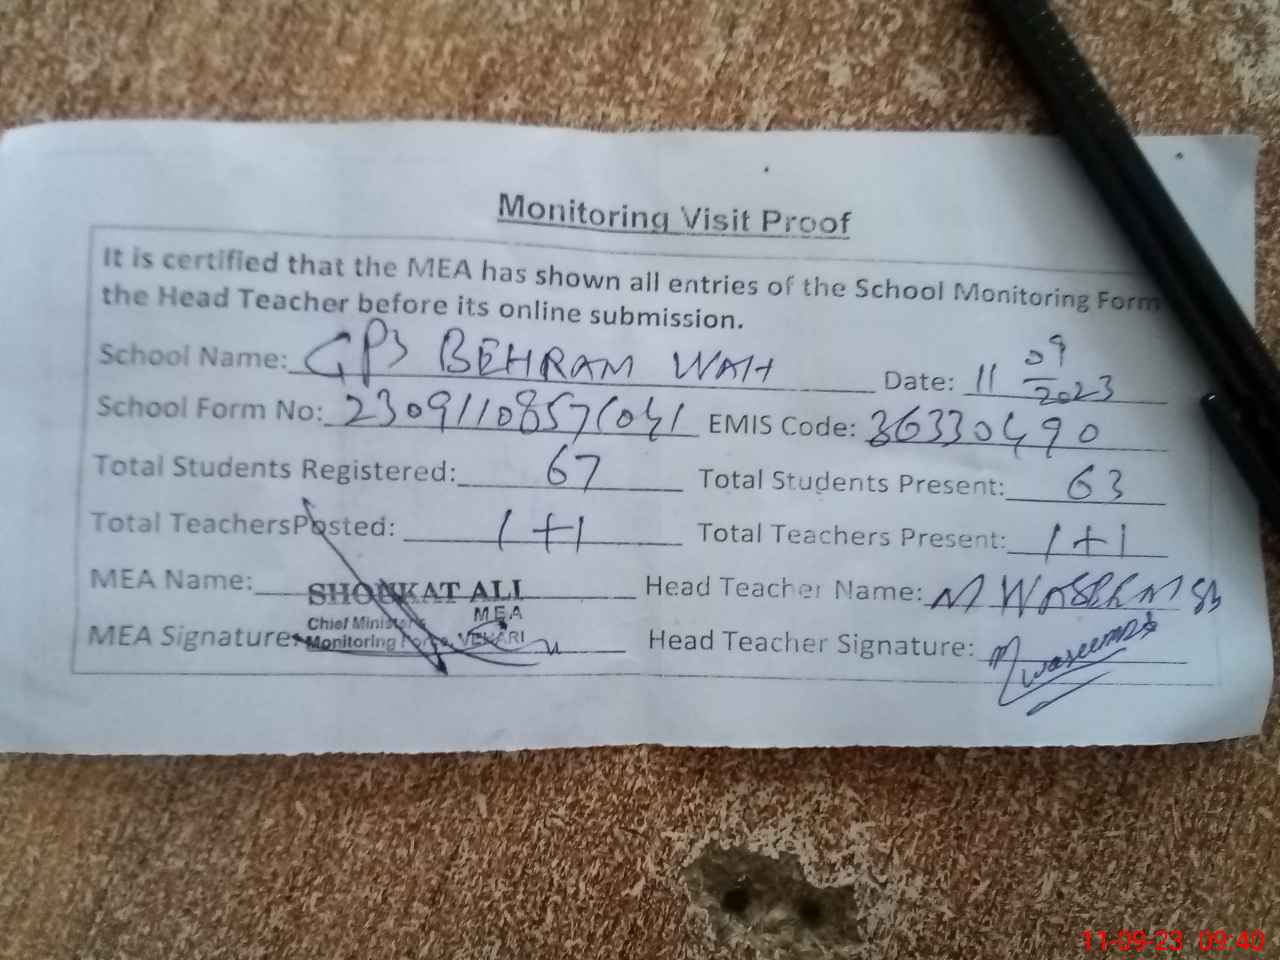 Monitoring Visit Proof
It is certified that the MEA has shown all entries of the School Monitoring Form
the Head Teacher before its online submission.
School Name: GPS BEHRAM WAH Date: 11 09/2023
School Form No: EMIS Code: 36330490
Total Students Registered: 67 Total Students Present: 63
Total TeachersPosted: 1+1 Total Teachers Present: 1+1
MEA Name: SHOUKAT ALI Head Teacher Name: M WASEEM
MEA
Chief Minister's
Monitoring Force, VEHARI
MEA Signature: Head Teacher Signature: M Waseem
11-09-23 09:40